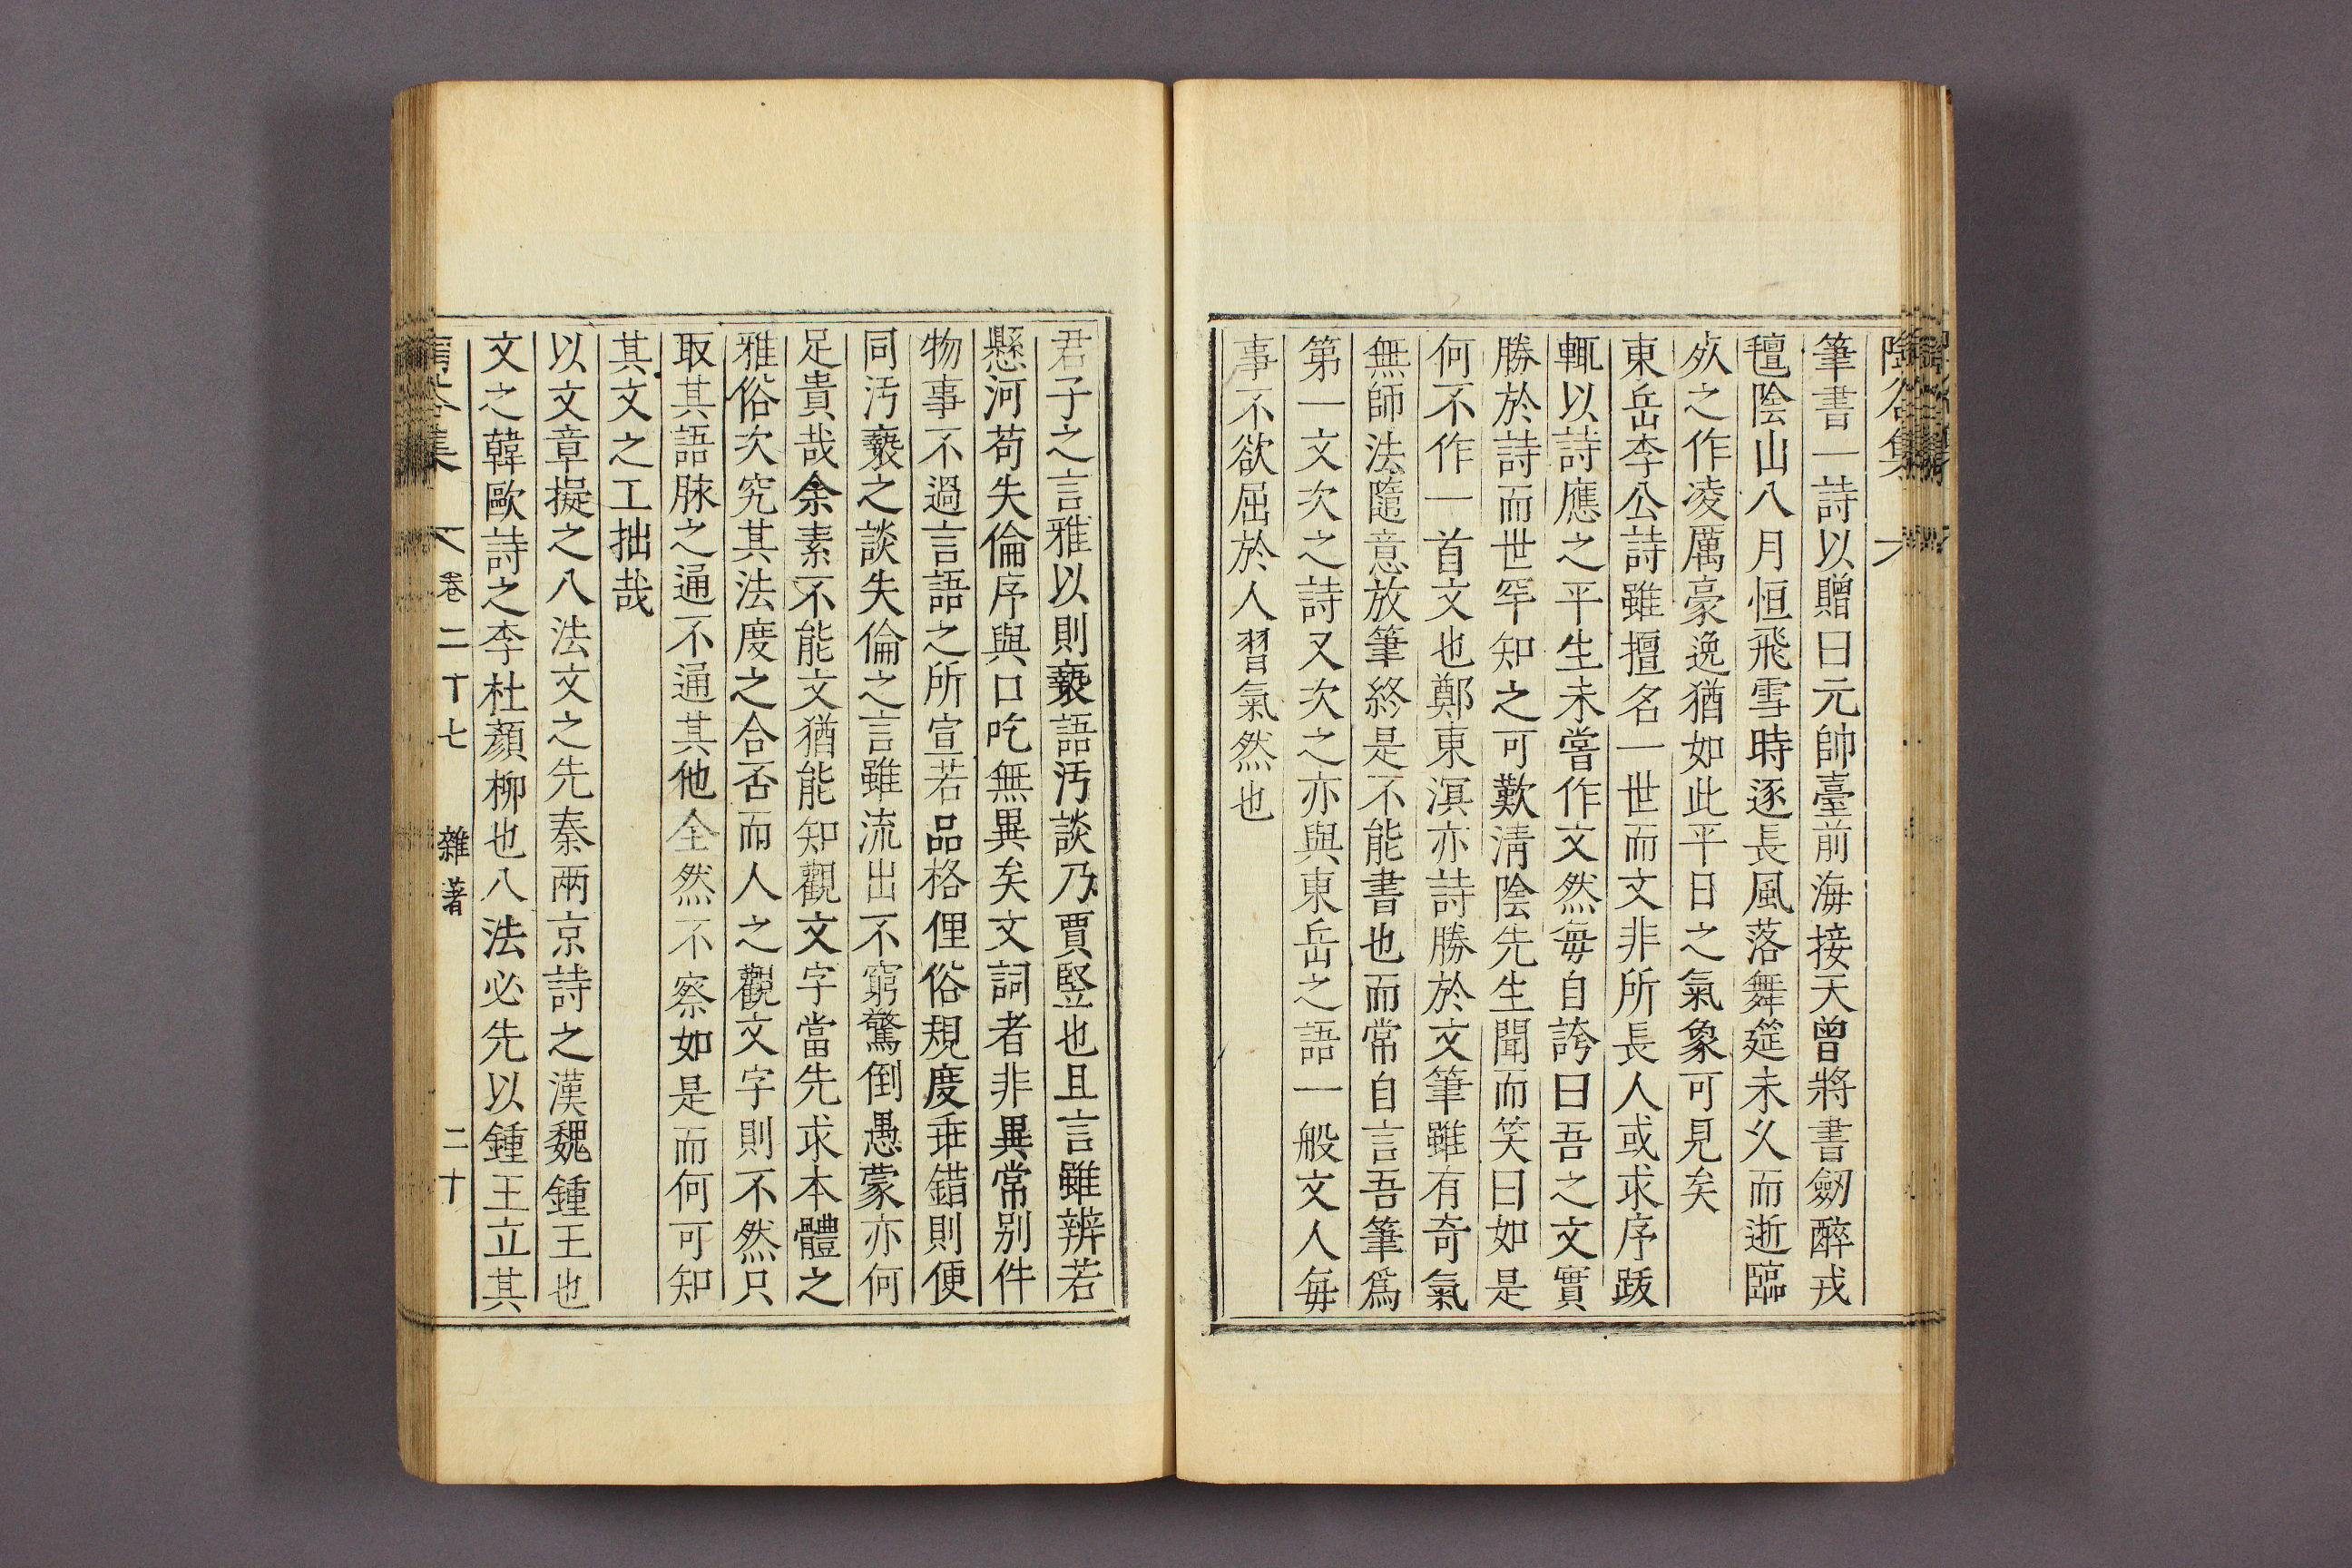 筆書一詩以贈曰元帥臺前海接天曾將書劒醉戎
氊陰山八月恒飛雪時逐長風落舞筵未久而逝臨
死之作凌厲豪逸猶如此平日之氣象可見矣
東岳李公詩雖擅名一世而文非所長人或求序跋
輒以詩應之平生未嘗作文然每自誇曰吾之文實
勝於詩而世罕知之可歎淸陰先生聞而笑曰如是
何不作一首文也鄭東溟亦詩勝於文筆雖有奇氣
無師法隨意放筆終是不能書也而常自言吾筆爲
第一文次之詩又次之亦與東岳之語一般文人每
事不欲屈於人習氣然也
君子之言雅以則褻語汚談乃賈竪也且言雖辨若
懸河苟失倫序與口吃無異矣文詞者非異常别件
物事不過言語之所宣若品格俚俗規度乖錯則便
同汚褻之談失倫之言雖流出不窮驚倒愚蒙亦何
足貴哉余素不能文猶能知觀文字當先求本體之
雅俗次究其法度之合否而人之觀文字則不然只
取其語脉之通不通其他全然不察如是而何可知
其文之工拙哉
以文章擬之八法文之先秦兩京詩之漢魏鍾王也
文之韓歐詩之李杜顔柳也八法必先以鍾王立其
卷二十七 雜著 二十